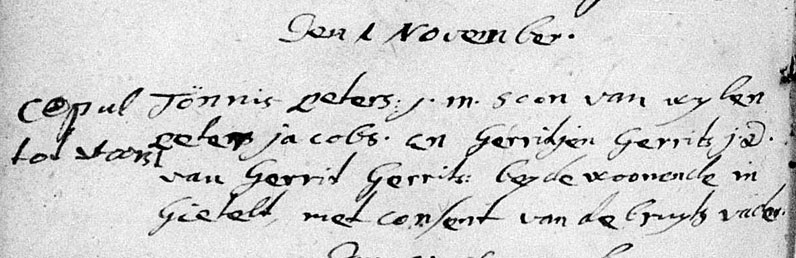 Den 1 November.
Copul Tönnis peters: j. m. soon van wylen
tot Vorst peters jacobs. en Gerritjen Gerrits jd.
van Gerrit Gerrits: beyde woonende in
Gietelt, met consent van de bruyts vader.